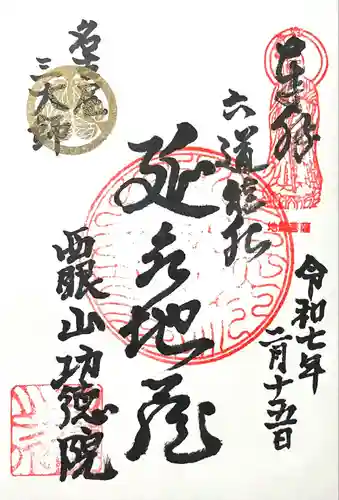 奉拝
令和七年
二月十五日
六道能化
延命地蔵
名古屋
三大師
西眼山功徳院
地蔵菩薩